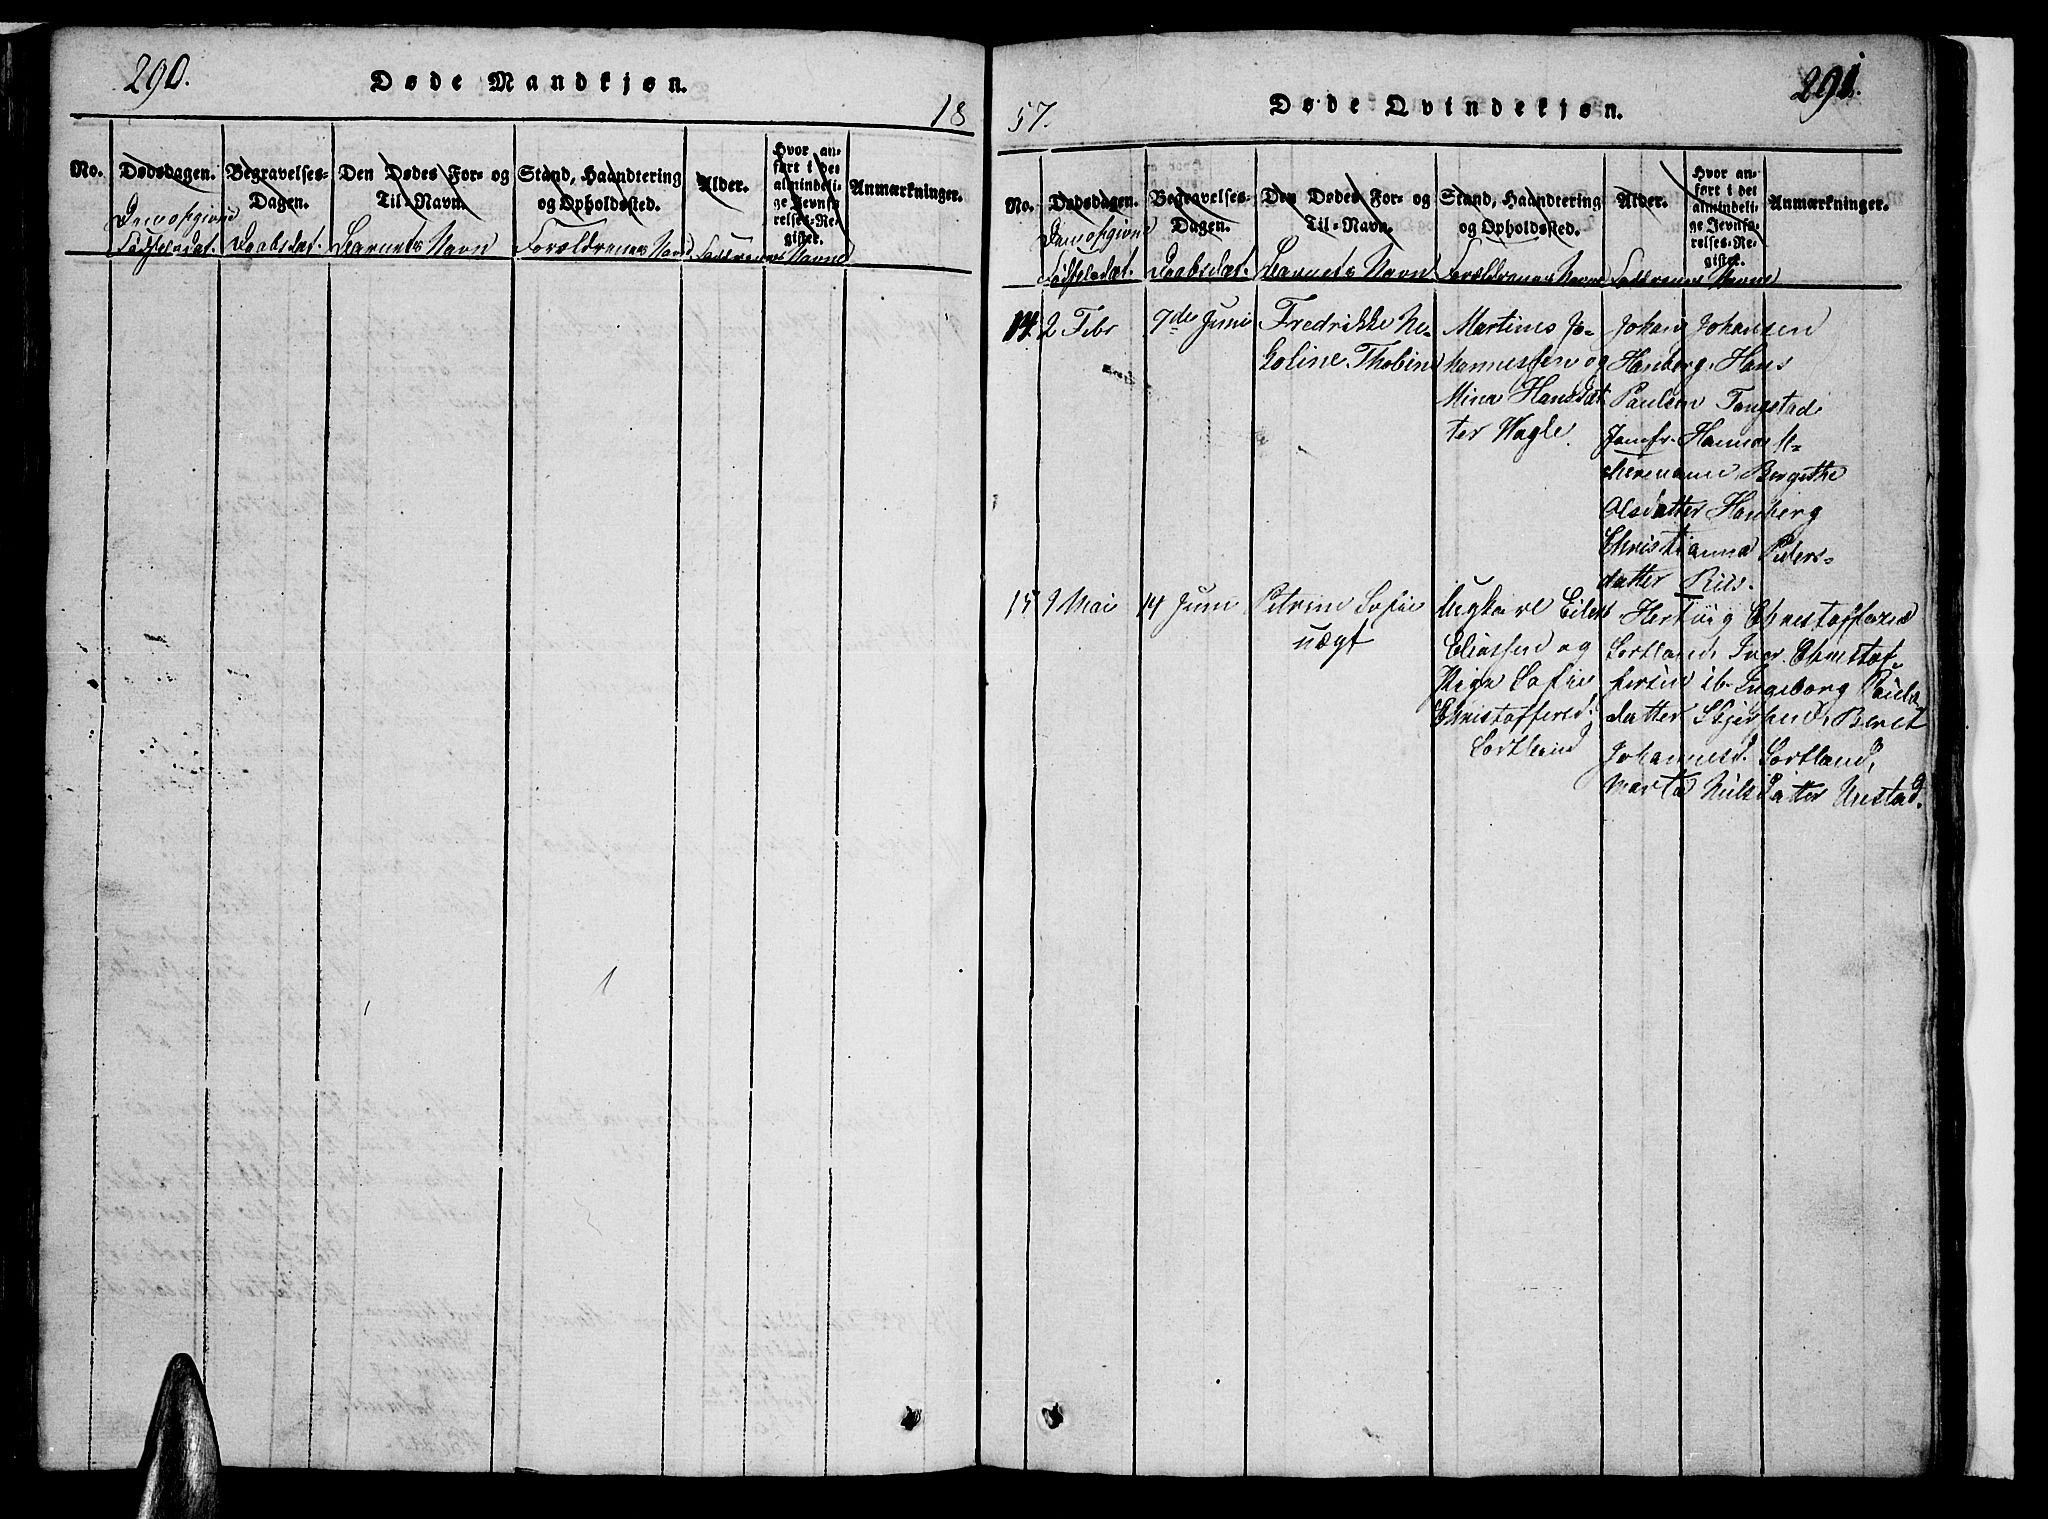 290.
Døde Mandkjøn.
18
No.
Dødsdagen.
Begravelses-
Dagen.
Den Dødes For- og
Til-Navn.
Stand, Haandtering
og Opholdssted.
Alder.
Hvor an-
ført i det
almindeli-
ge Jevnfø-
relses-Re-
gister.
Anmærkninger.
Den opgivne
Fødselsdat.
Daabsdat.
Barnets Navn
Forældrenes Navne
Faddernes Navne
57.
Døde Qvindekjøn.
291.
No.
Dødsdagen.
Begravelses-
Dagen.
Den Dødes For- og
Til-Navn.
Stand, Haandtering
og Opholdssted.
Alder.
Hvor an-
ført i det
almindeli-
ge Jevnfø-
relses-Re-
gister.
Anmærkninger.
Den opgivne
Fødselsdat.
Daabsdat.
Barnets Navn
Forældrenes Navne
Faddernes Navne
14.
2 Febr
7de Juni
Fredrikke Ni-
koline Thobine
Martines Jo-
hannessen og
Mina Hansdat
ter Vagle.
Johan Johansen
Hanberg. Hans
Paulsen Tangstad.
Jomfr. Hanna
Bergithe
Olsdatter Hanberg
Christianna Peders-
datter Riis.
15
9 Mai
14 Juni
Petrine Sofie
uægt
Ungkarl Eilert
Eliassen og
Pige Sofie
Christoffersd.
Sortland
Hertvig Christoffersen
Sortland, Iver Christof-
fersen ib. Ingeborg Pouls-
datter Skjerhend, Beret
Johannesd. Sortland,
Marta Nilsdatter Vrestad.